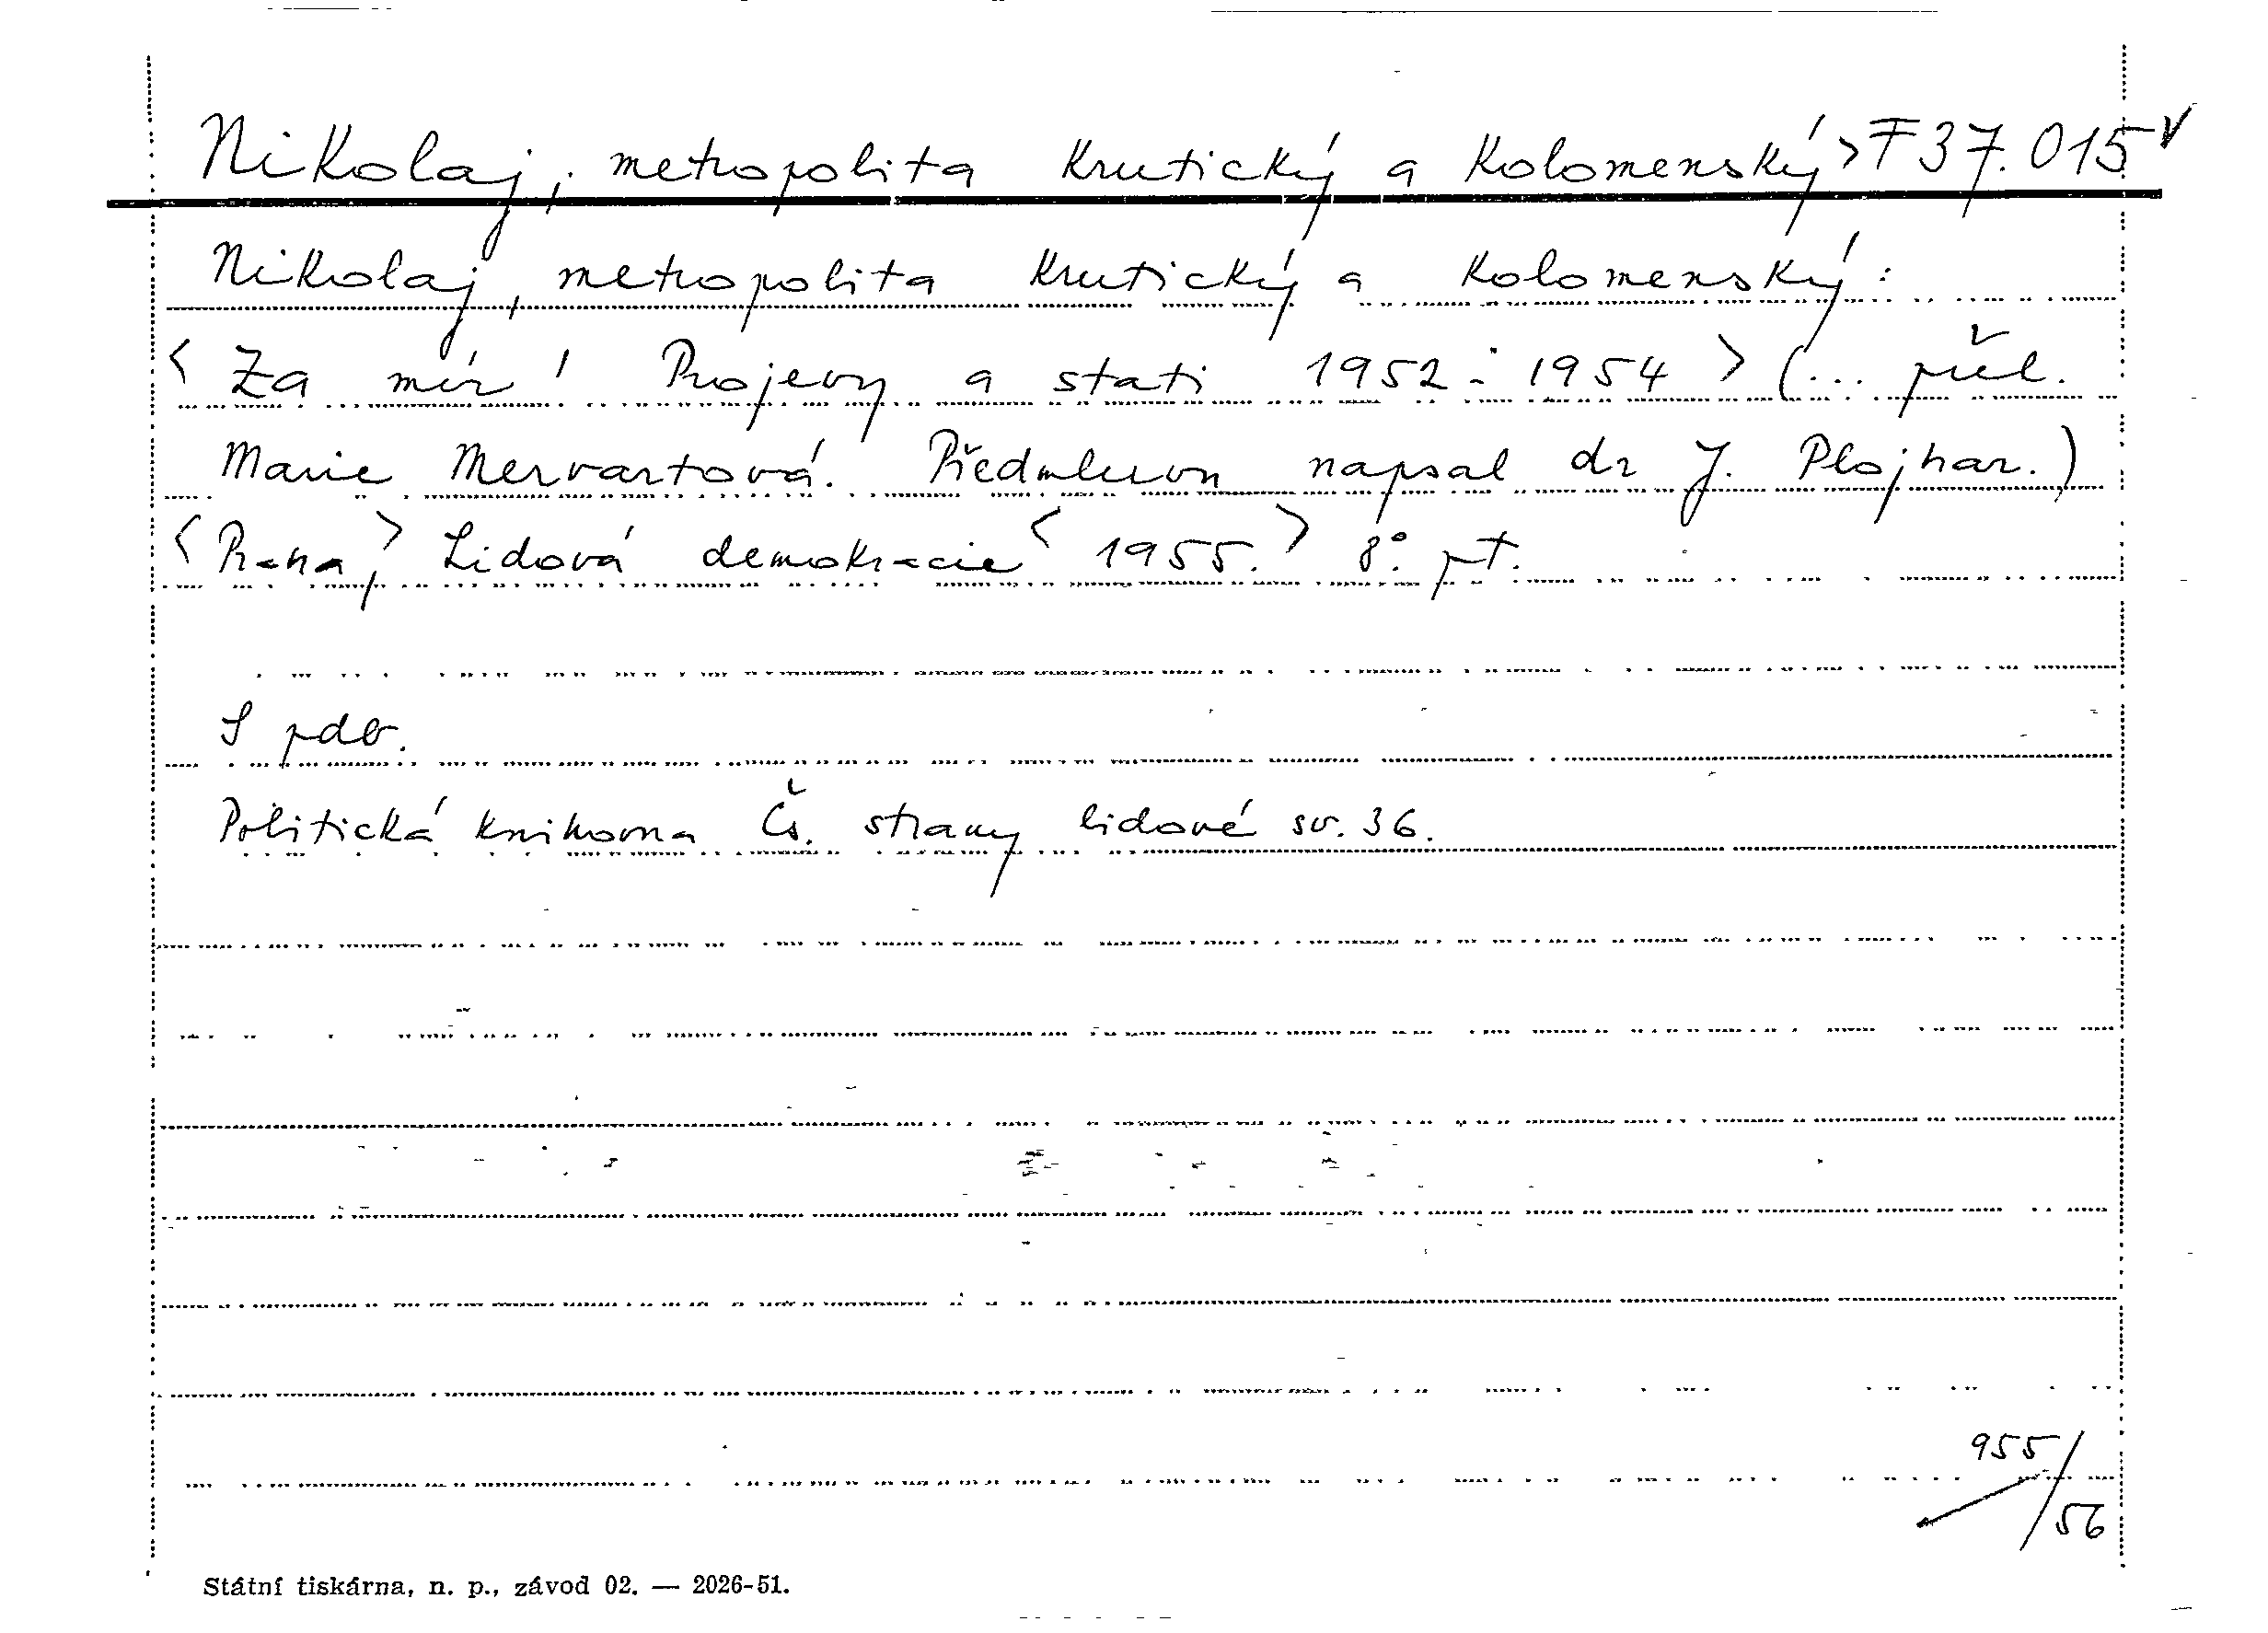 Nikolaj, metropolita Krutický a Kolomenský> F 37.015 v
Nikolaj, metropolita Krutický a Kolomenský:
<Za mír! Projevy a stati 1952-1954> (... přel.
Marie Mervartová. Předmluvu napsal dr J. Plojhar.)
<Praha,> Lidová demokracie <1955.> 8°. pt.
S pdb.
Politická knihovna Čs. strany lidové sv. 36.
955/56
Státní tiskárna, n. p., závod 02. — 2026-51.